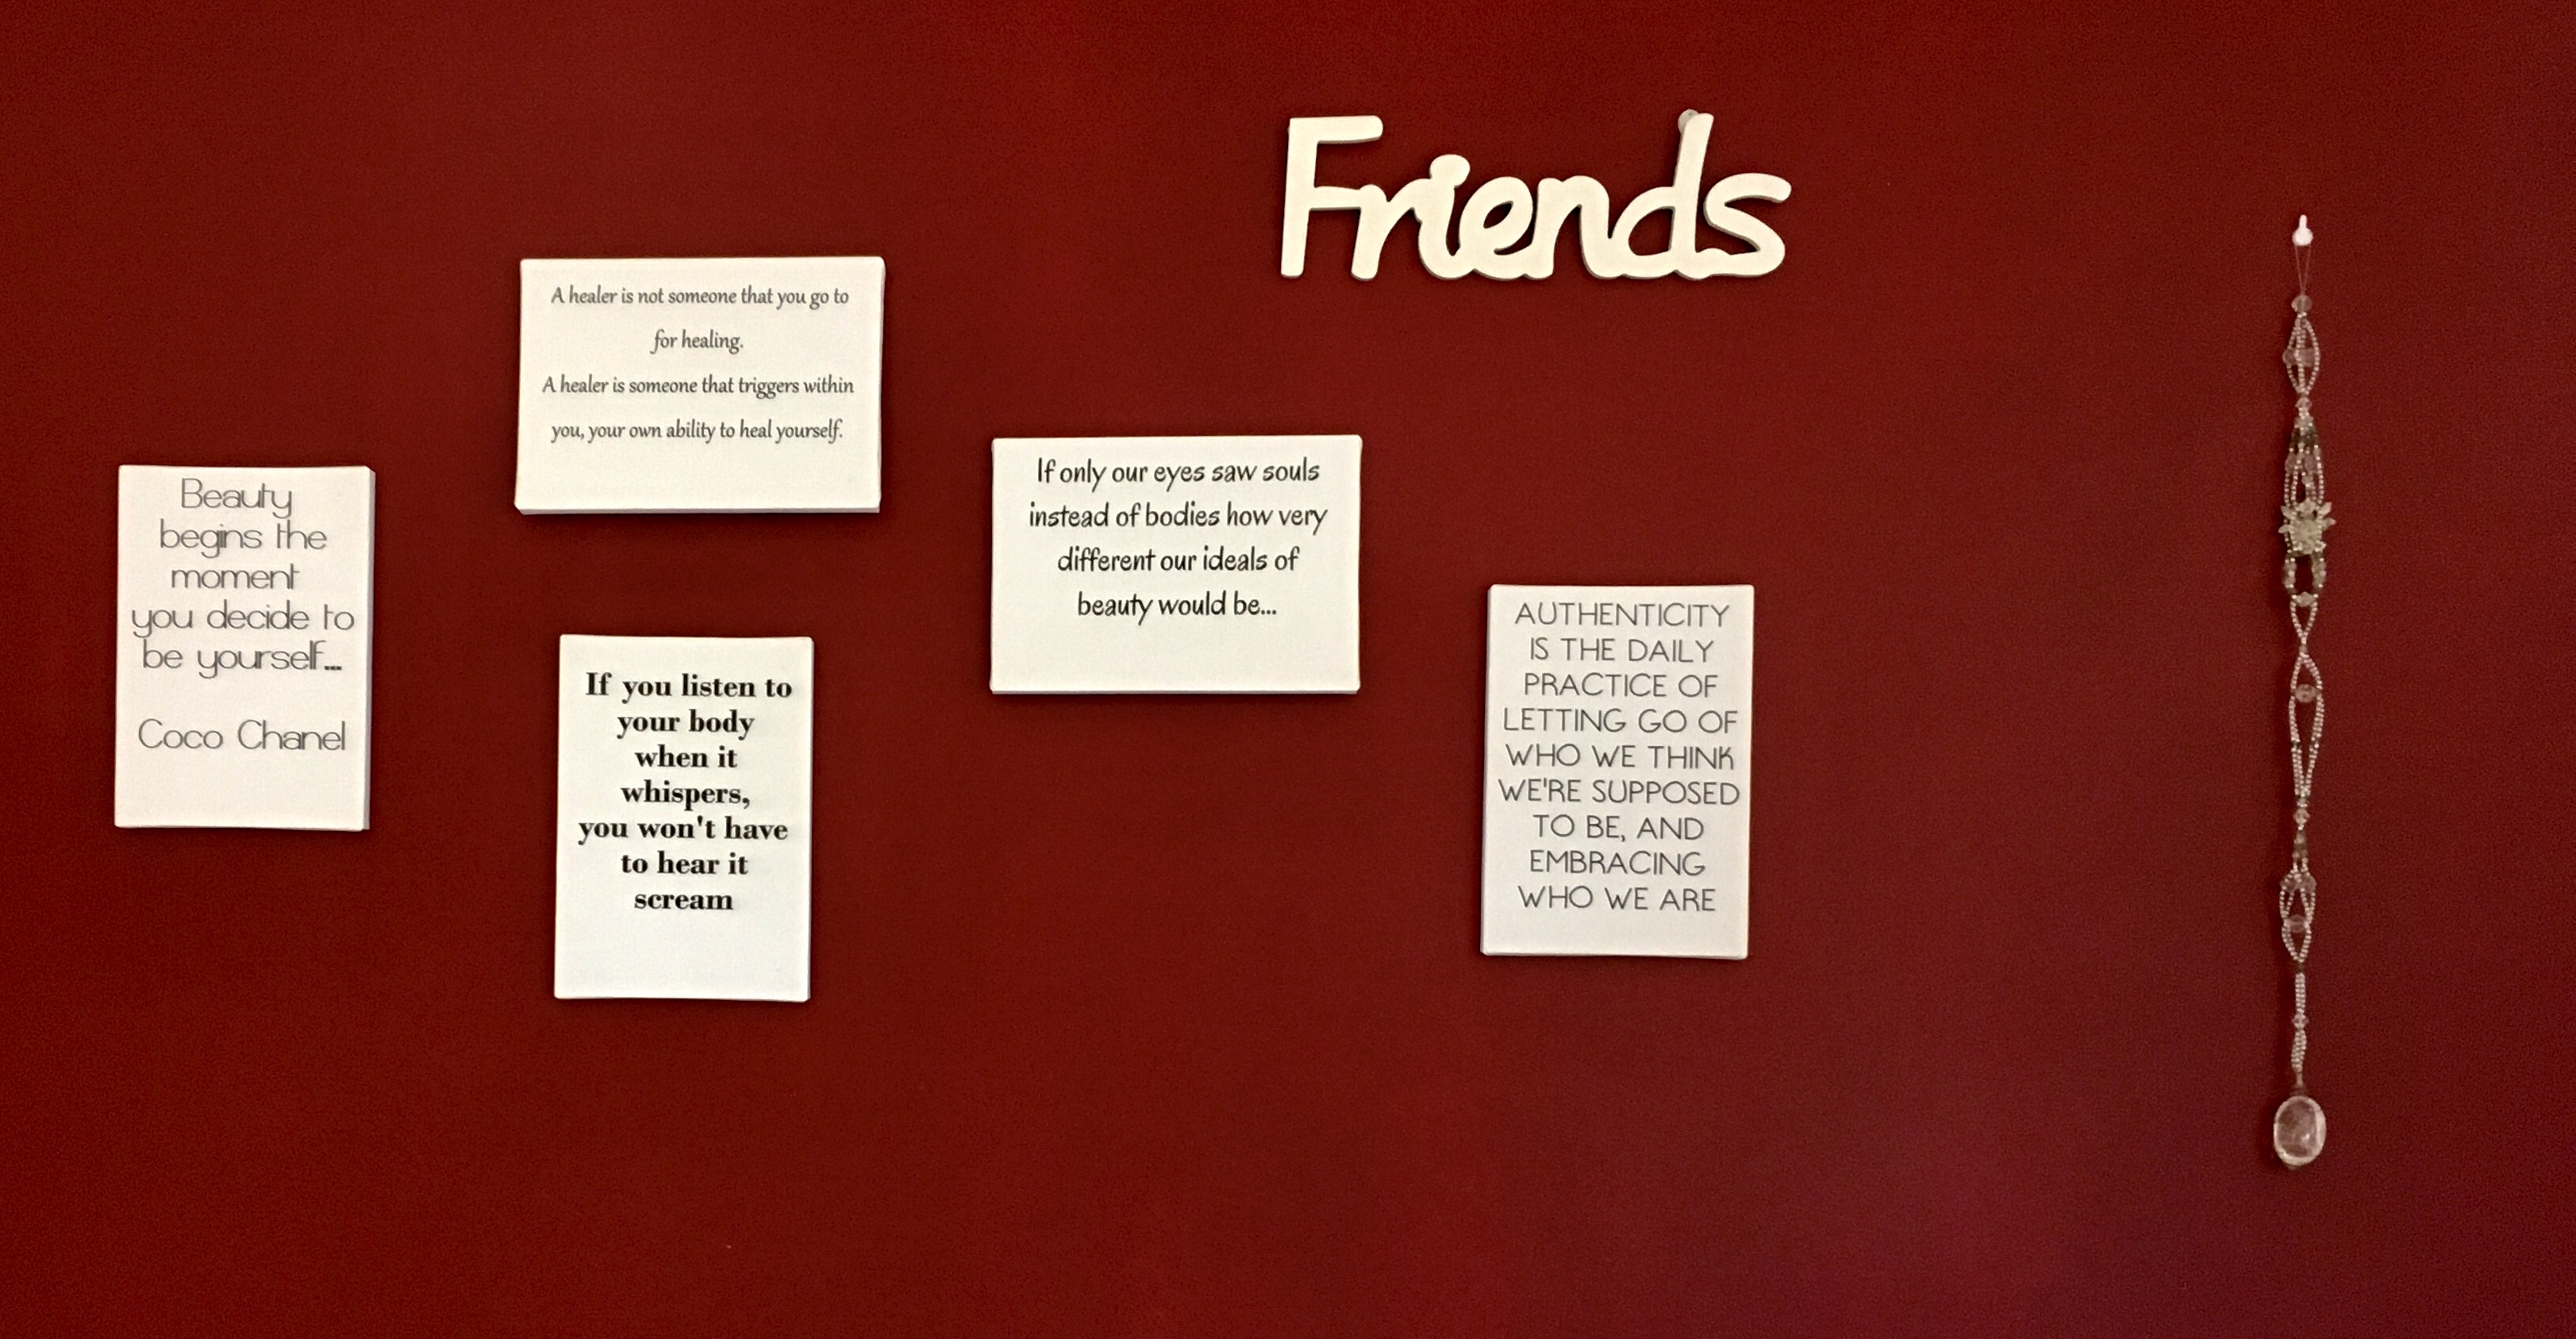 Friends
A healer is not someone that you go to
for healing.
A healer is someone that triggers within
you, your own ability to heal yourself.
Beauty
begins the
moment
you decide to
be yourself...
Coco Chanel
If you listen to
your body
when it
whispers,
you won't have
to hear it
scream
If only our eyes saw souls
instead of bodies how very
different our ideals of
beauty would be...
AUTHENTICITY
IS THE DAILY
PRACTICE OF
LETTING GO OF
WHO WE THINK
WE'RE SUPPOSED
TO BE, AND
EMBRACING
WHO WE ARE